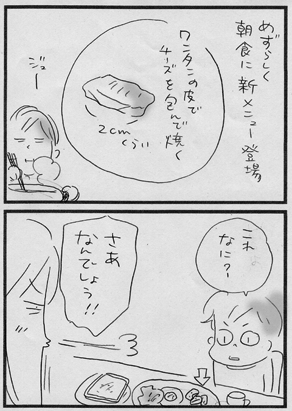 めずらしく
朝食に新メニュー登場
ワンタンの皮で
チーズを包んで焼く
2cm
くらい
ジュー
これ
なに?
さあ
なんでしょう!!